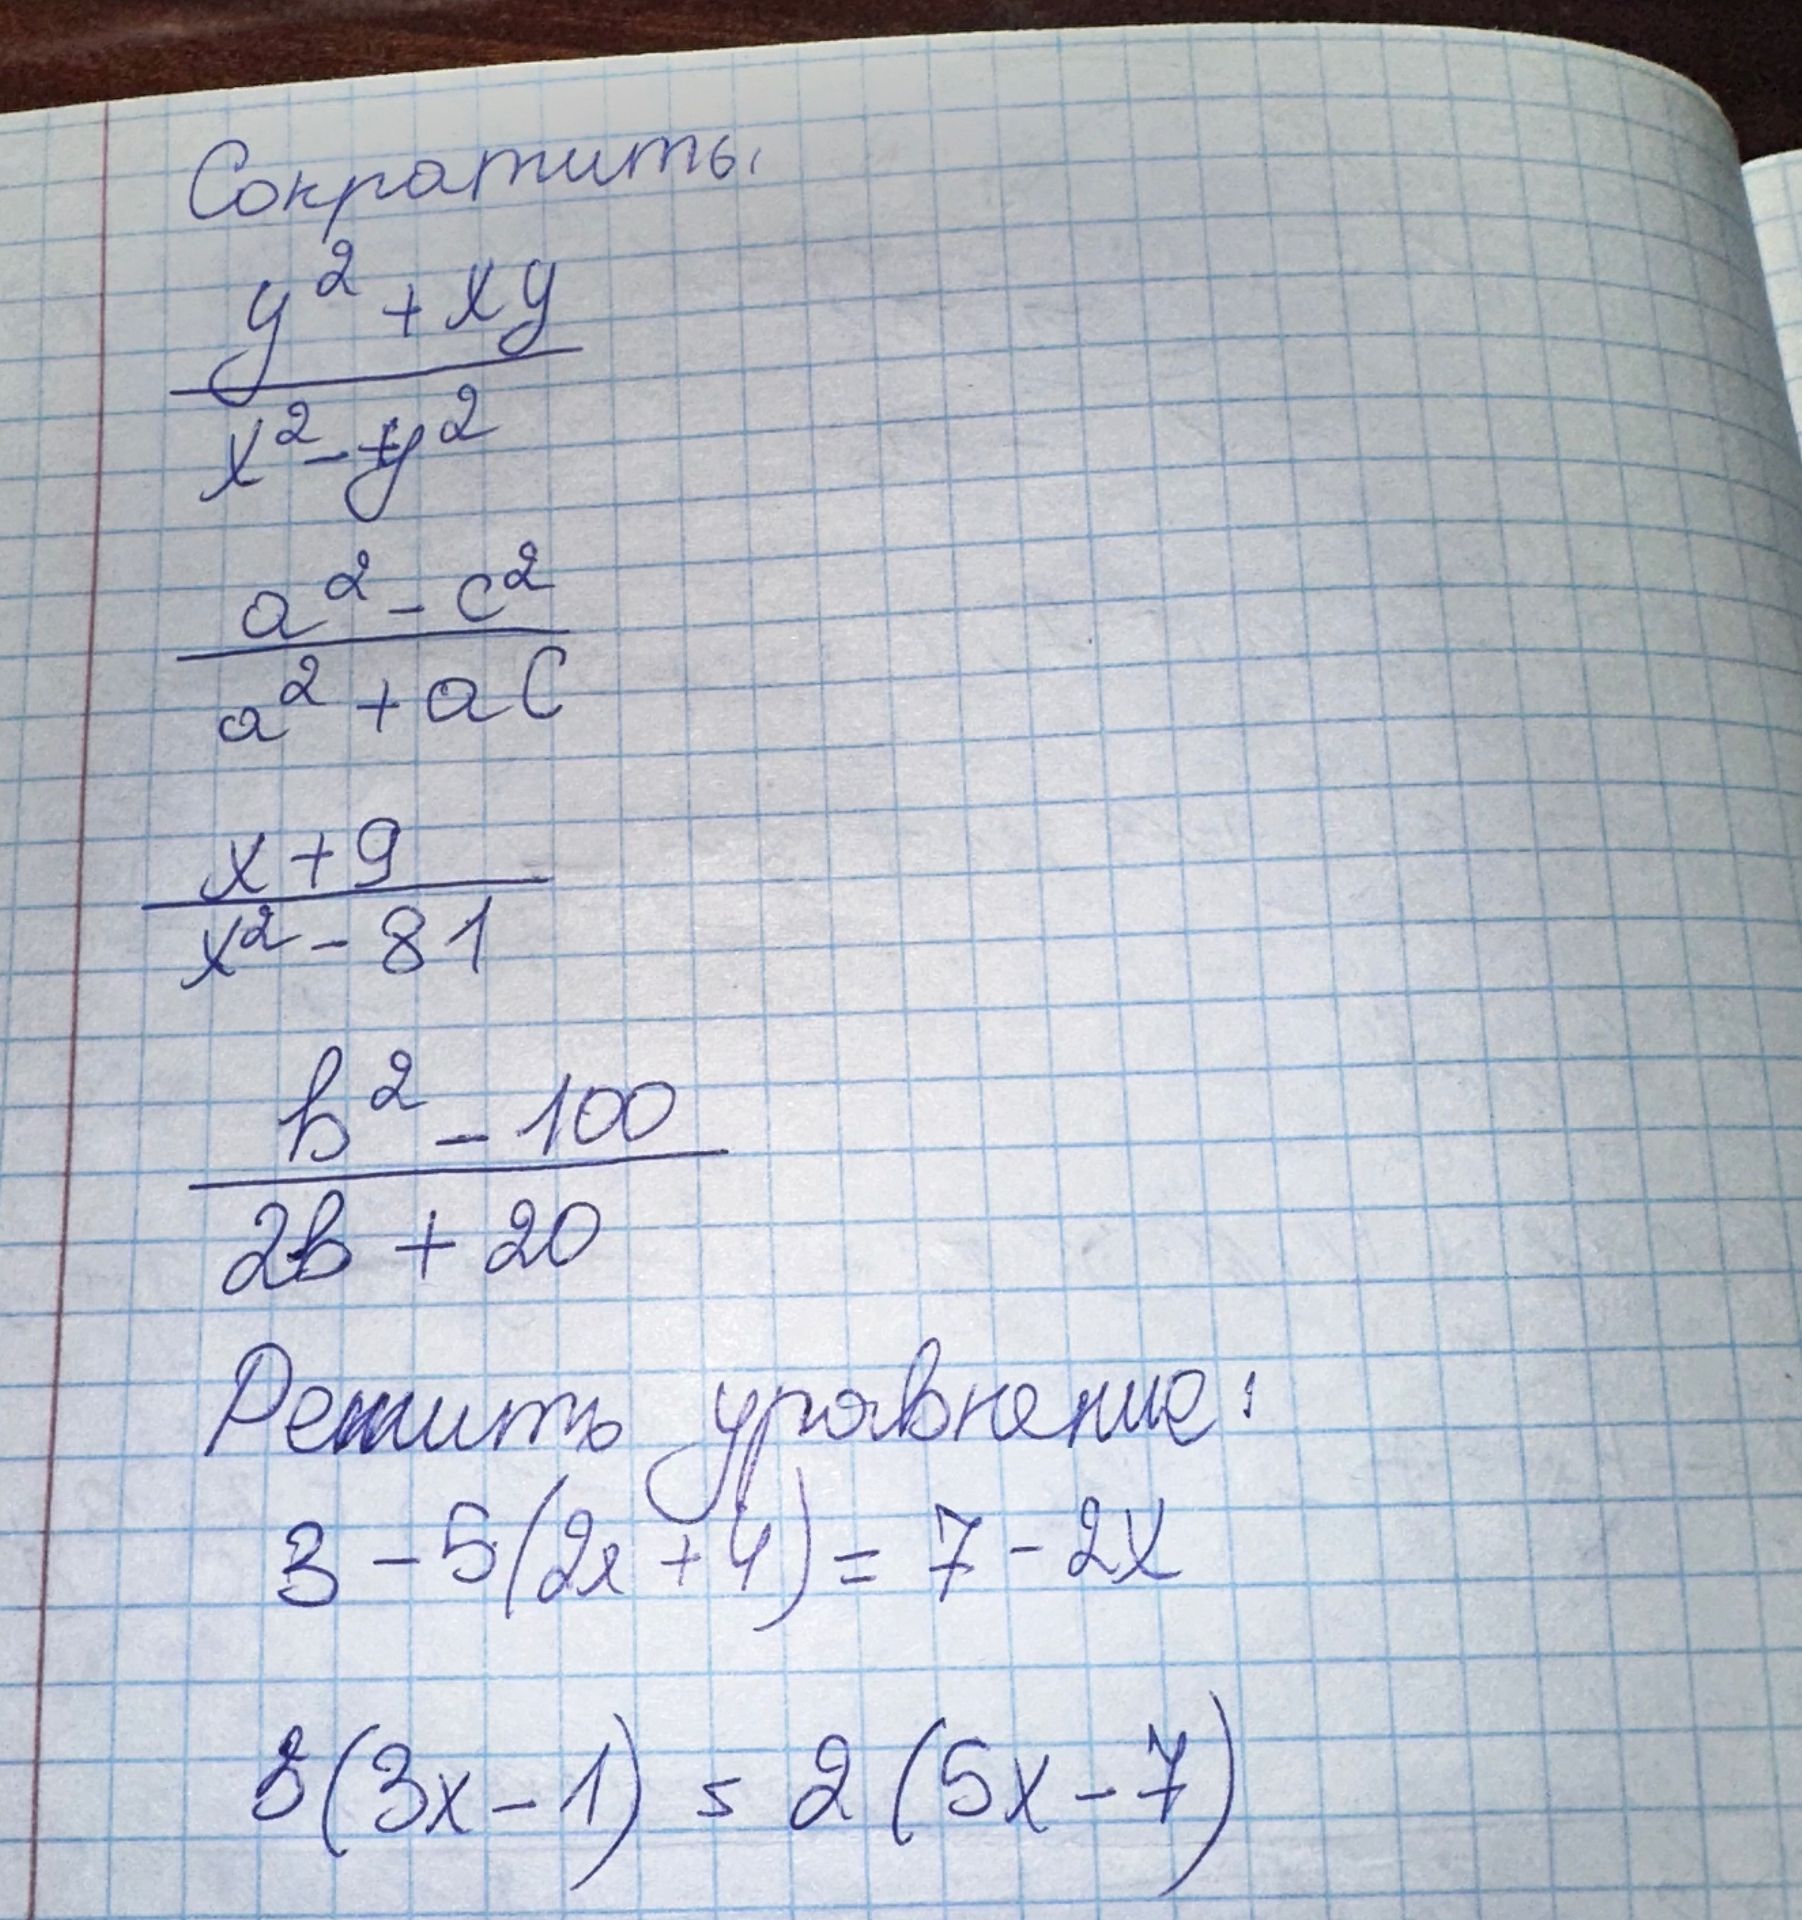 Сократить:
y² + xy
x² - y²
a² - c²
a² + ac
x + 9
x² - 81
b² - 100
2b + 20
Решить уравнение:
3 - 5(2x + 4) = 7 - 2x
3(3x - 1) = 2(5x - 7)